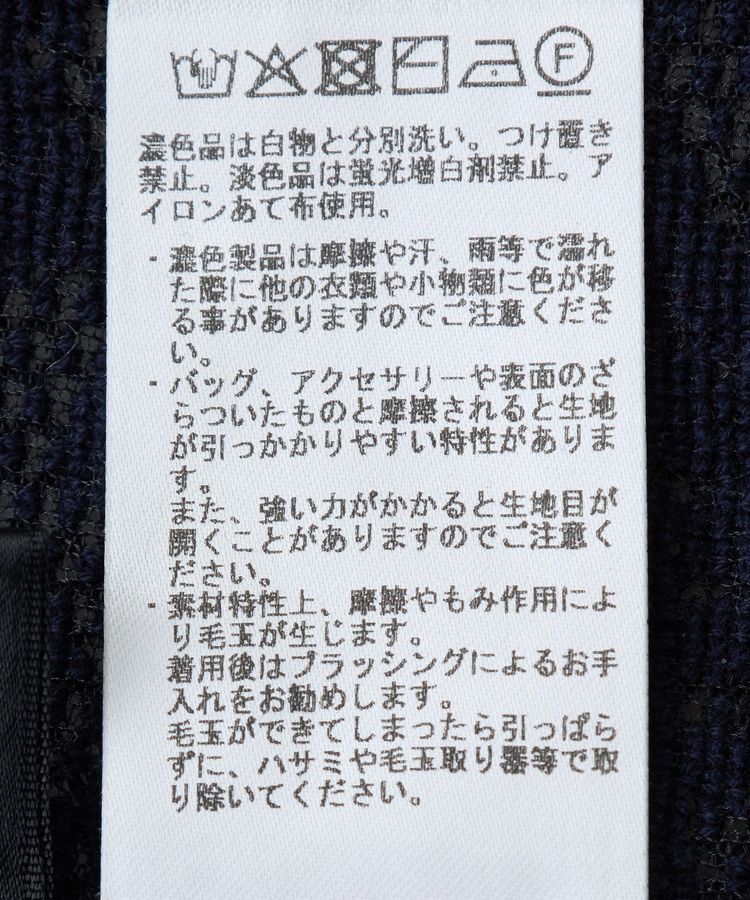 F
濃色品は白物と分別洗い。つけ置き
禁止。淡色品は蛍光増白剤禁止。ア
イロンあて布使用。
・濃色製品は摩擦や汗、雨等で濡れ
た際に他の衣類や小物類に色が移
る事がありますのでご注意くださ
い。
・バッグ、アクセサリーや表面のざ
らついたものと摩擦されると生地
が引っかかりやすい特性がありま
す。
また、強い力がかかると生地目が
開くことがありますのでご注意く
ださい。
・素材特性上、摩擦やもみ作用によ
り毛玉が生じます。
着用後はブラッシングによるお手
入れをお勧めします。
毛玉ができてしまったら引っぱら
ずに、ハサミや毛玉取り器等で取
り除いてください。